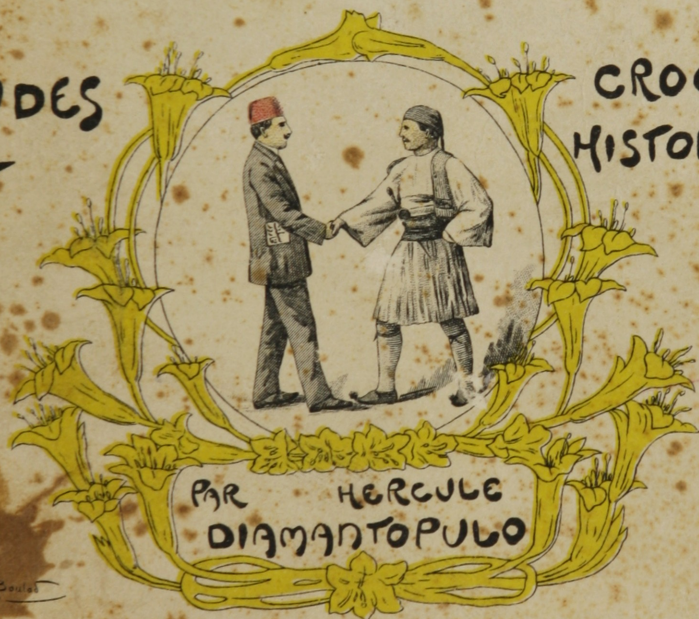 DES
CROQ
HISTO
PAR HERCULE
DIAMANTOPULO